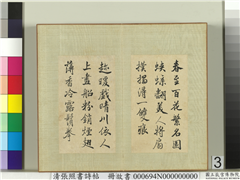 春至百花繁名園
蛺蝶翻美人將扇
撲得一雙
趁暖戲晴川依人
上畫船粉銷煙
薄香冷露鬢
3
清張照書詩帖 冊 故書000694N000000000
國立故宮博物院